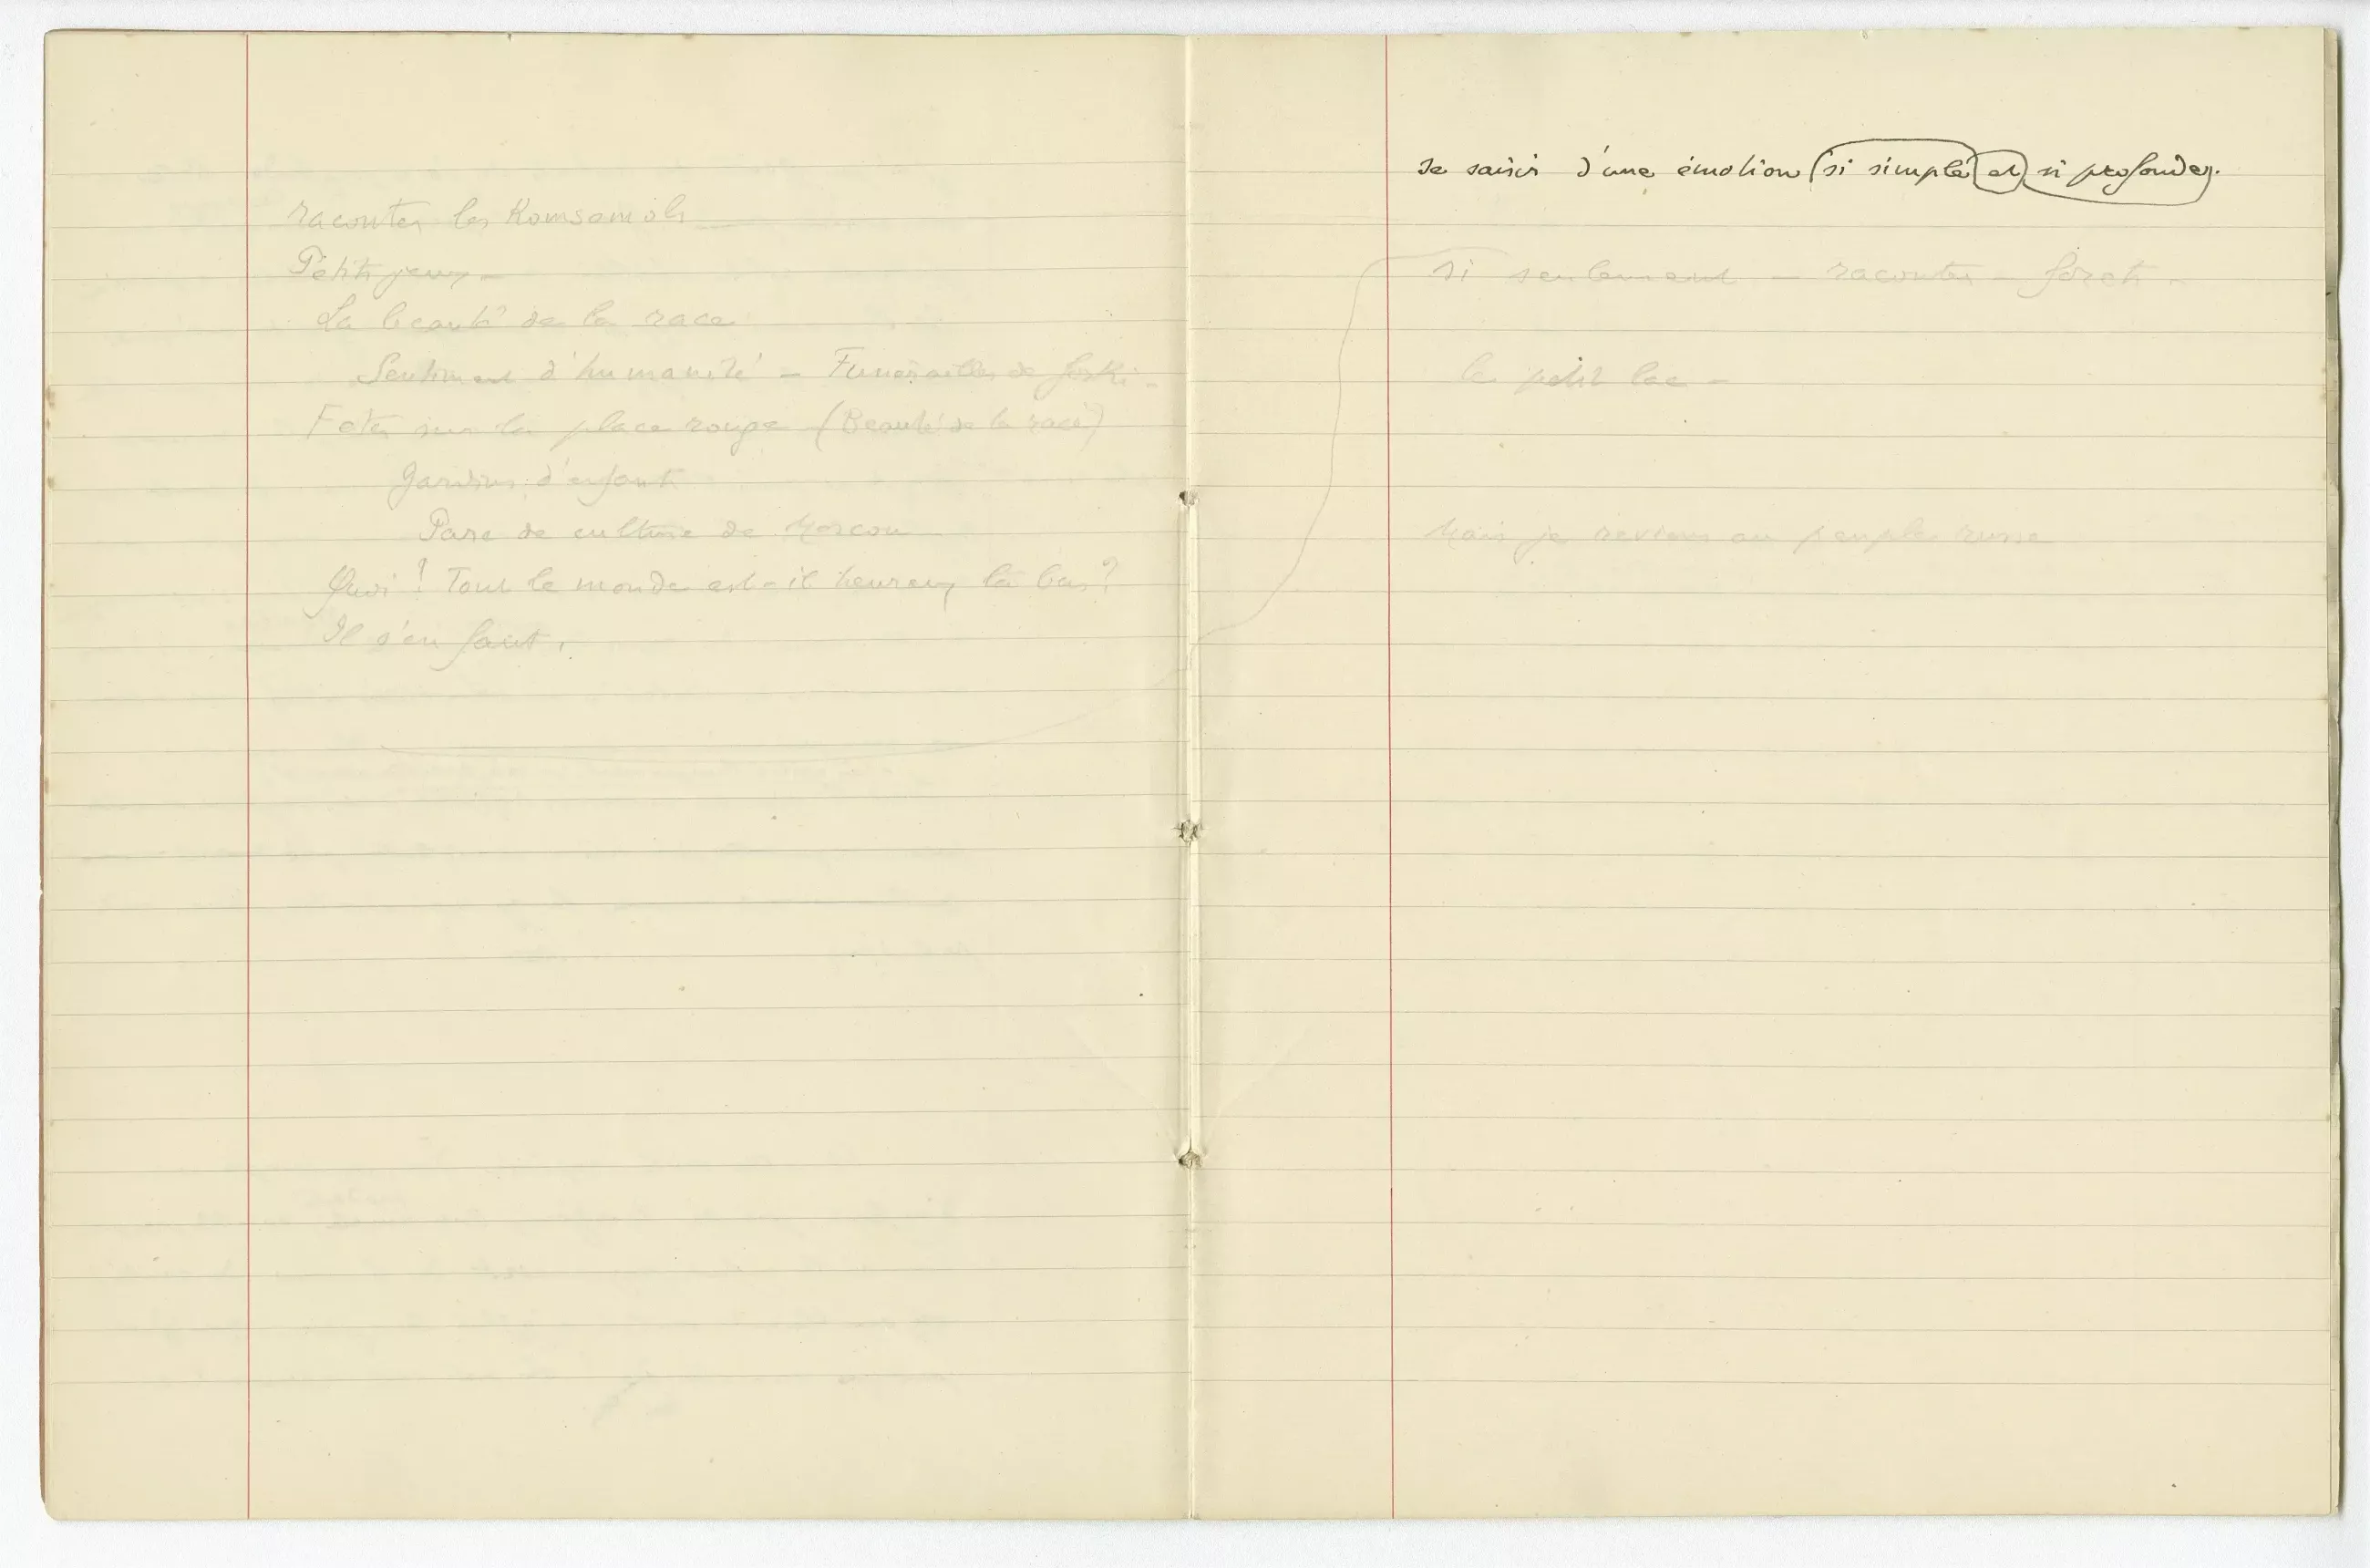 raconter les Komsomols
Petits jeux -
La beauté de la race
Sentiment d'humanité - Funérailles de Gorki -
Fetes sur la place rouge - (Beauté de la race)
Jardins d'enfants
Parc de culture de Moscou
Quoi ! Tout le monde est-il heureux là bas ?
Il s'en faut.
se saisir d'une émotion si simple et si profonde.
si seulement - raconter - forêt -
le petit lac -
Mais je reviens au peuple russe